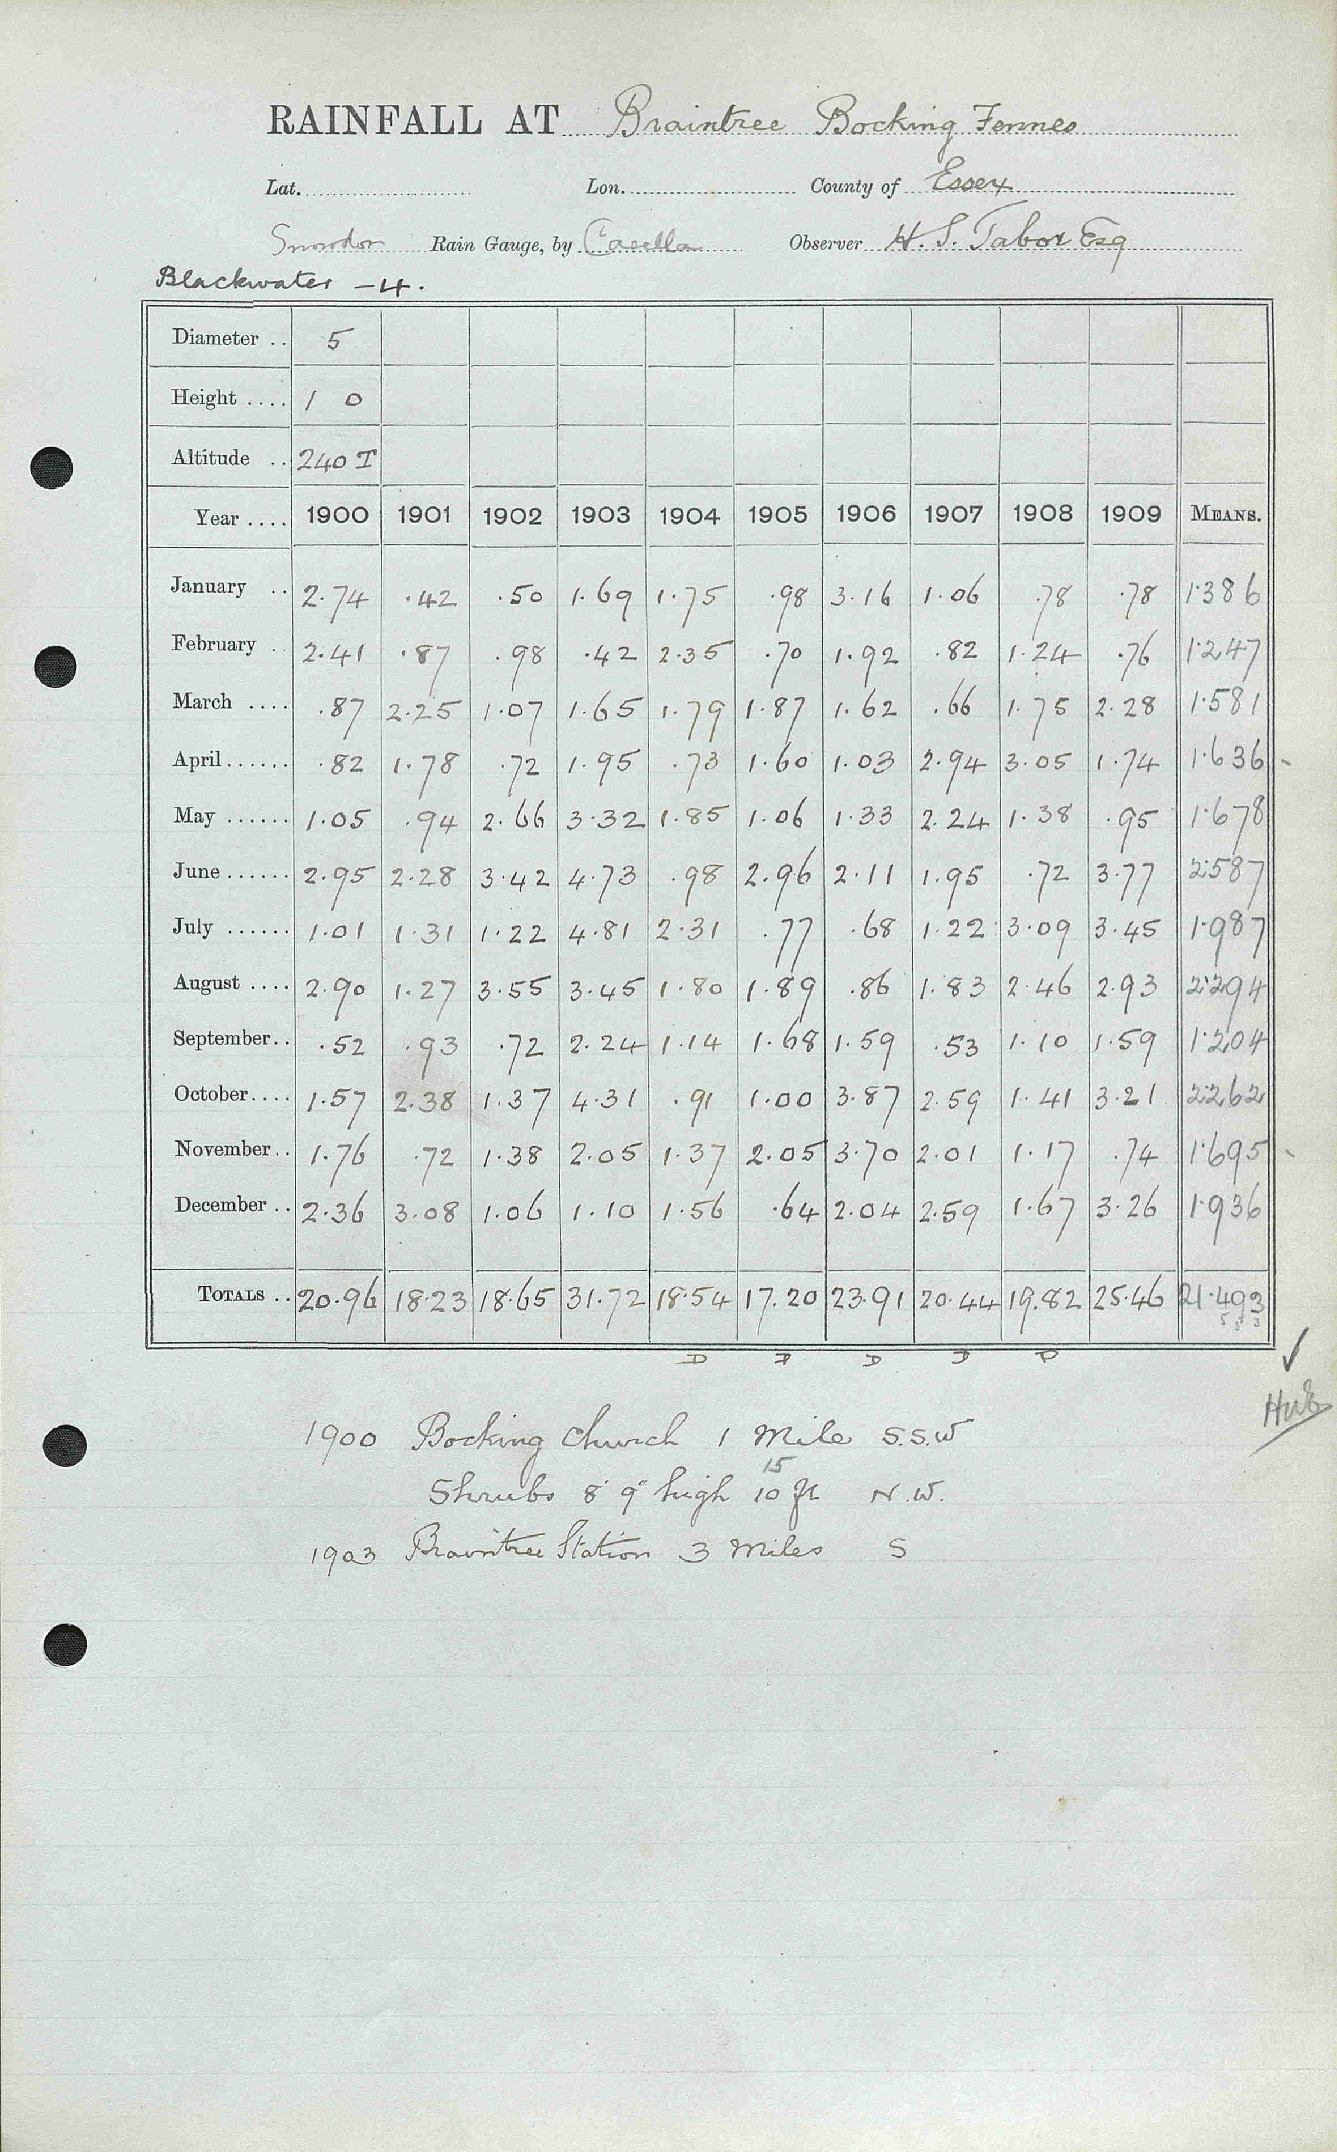 RAINFALL AT Braintree Bocking Fennes
Lat. Lon. County of Essex
Snowdon Rain Gauge, by Casella Observer H. S. Tabor Esq
Blackwater – 4.
Diameter .. 5
Height .... 1 0
Altitude .. 240 T
Year .... 1900 1901 1902 1903 1904 1905 1906 1907 1908 1909 MEANS.
January .. 2.74 .42 .50 1.69 1.75 .98 3.16 1.06 .78 .78 1.386
February .. 2.41 .87 .98 .42 2.35 .70 1.92 .82 1.24 .76 1.247
March .... .87 2.25 1.07 1.65 1.79 1.87 1.62 .66 1.75 2.28 1.581
April ...... .82 1.78 .72 1.95 .73 1.60 1.03 2.94 3.05 1.74 1.636
May ...... 1.05 .94 2.66 3.32 1.85 1.06 1.33 2.24 1.38 .95 1.678
June ...... 2.95 2.28 3.42 4.73 .98 2.96 2.11 1.95 .72 3.77 2.587
July ...... 1.01 1.31 1.22 4.81 2.31 .77 .68 1.22 3.09 3.45 1.987
August .... 2.90 1.27 3.55 3.45 1.80 1.89 .86 1.83 2.46 2.93 2.294
September .. .52 .93 .72 2.24 1.14 1.68 1.59 .53 1.10 1.59 1.204
October .... 1.57 2.38 1.37 4.31 .91 1.00 3.87 2.59 1.41 3.21 2.262
November .. 1.76 .72 1.38 2.05 1.37 2.05 3.70 2.01 1.17 .74 1.695
December .. 2.36 3.08 1.06 1.10 1.56 .64 2.04 2.59 1.67 3.26 1.936
TOTALS .. 20.96 18.23 18.65 31.72 18.54 17.20 23.91 20.44 19.82 25.46 21.493
D D D D D
1900 Bocking Church 1 Mile S.S.W
15
Shrubs 8' 9" high 10 ft N.W.
1903 Braintree Station 3 Miles S